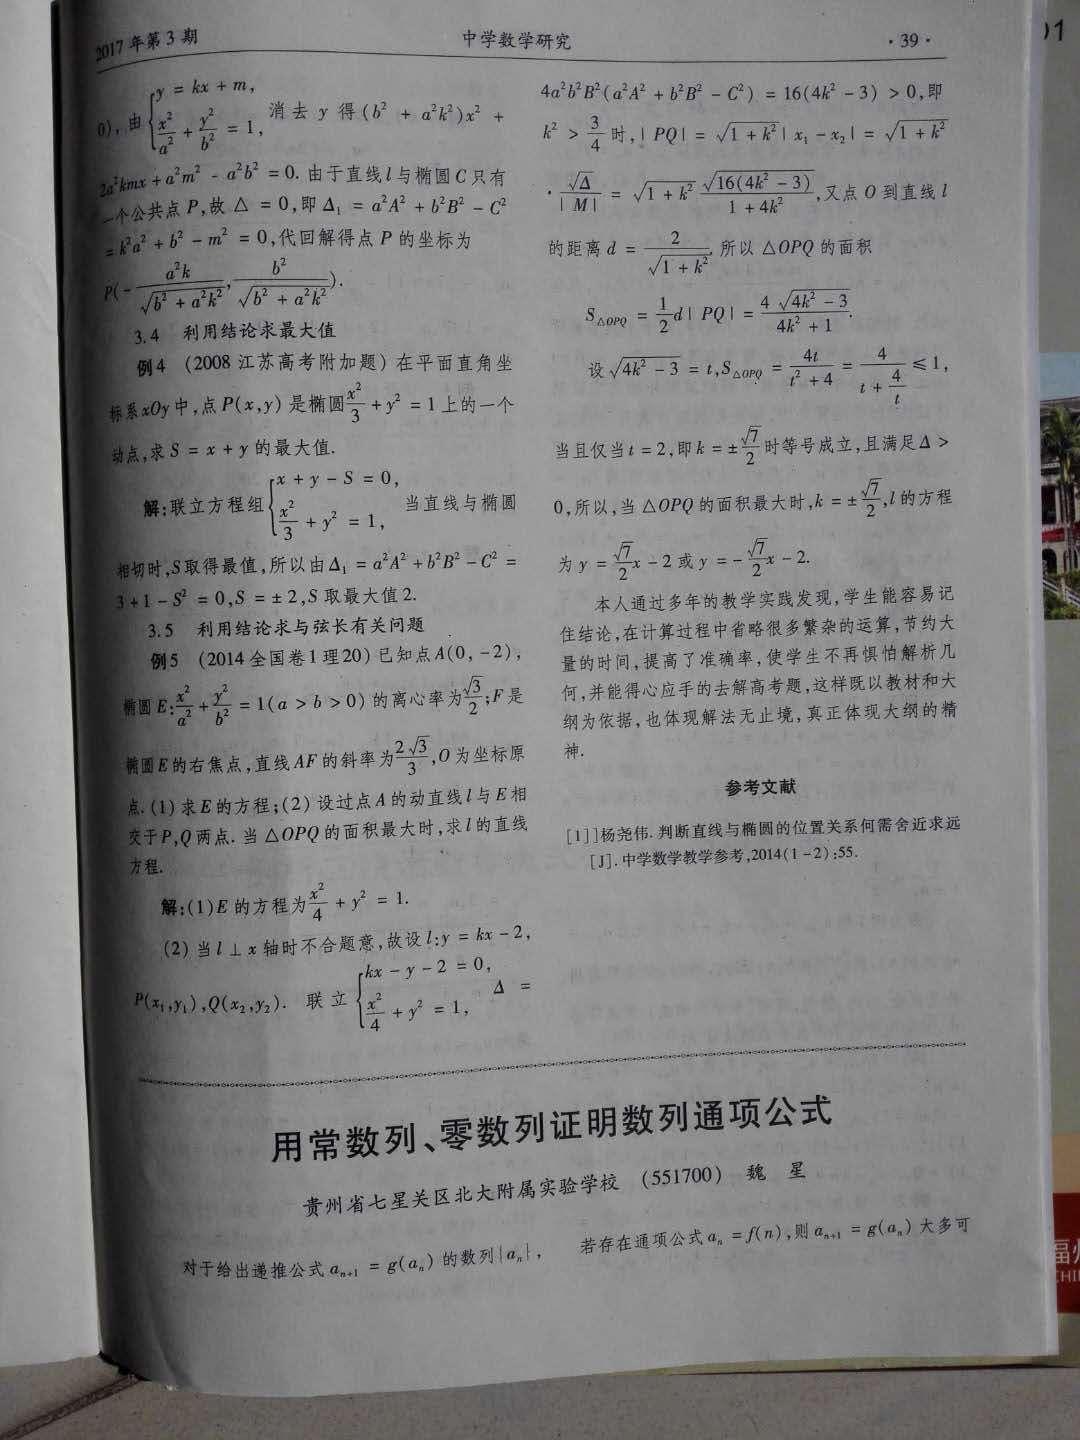 2017年第3期 中学数学研究 ·39·
0),由{y = kx + m, x²/a² + y²/b² = 1, 消去 y 得(b² + a²k²)x² +
2a²kmx + a²m² - a²b² = 0. 由于直线l与椭圆C只有
一个公共点P,故△ = 0,即Δ₁ = a²A² + b²B² - C²
= k²a² + b² - m² = 0,代回解得点 P 的坐标为
P(-a²k/√(b² + a²k²), b²/√(b² + a²k²)).
3.4 利用结论求最大值
例4 (2008江苏高考附加题) 在平面直角坐
标系xOy中,点P(x,y) 是椭圆x²/3 + y² = 1上的一个
动点,求S = x + y的最大值.
解:联立方程组{x + y - S = 0, x²/3 + y² = 1, 当直线与椭圆
相切时,S取得最值,所以由Δ₁ = a²A² + b²B² - C² =
3 + 1 - S² = 0,S = ±2,S取最大值2.
3.5 利用结论求与弦长有关问题
例5 (2014全国卷1理20) 已知点A(0, -2),
椭圆E:x²/a² + y²/b² = 1(a > b > 0) 的离心率为√3/2;F是
椭圆E的右焦点,直线AF的斜率为2√3/3,O为坐标原
点.(1) 求E的方程;(2) 设过点A的动直线l与E相
交于P,Q两点.当△OPQ的面积最大时,求l的直线
方程.
解:(1)E的方程为x²/4 + y² = 1.
(2) 当l⊥x轴时不合题意,故设l:y = kx - 2,
P(x₁,y₁),Q(x₂,y₂). 联立{kx - y - 2 = 0, x²/4 + y² = 1, Δ =
4a²b²B²(a²A² + b²B² - C²) = 16(4k² - 3) > 0,即
k² > 3/4时,|PQ| = √(1 + k²)|x₁ - x₂| = √(1 + k²)
·√Δ/|M| = √(1 + k²) √(16(4k² - 3))/(1 + 4k²),又点O到直线l
的距离d = 2/√(1 + k²).所以△OPQ的面积
S△OPQ = 1/2 d|PQ| = 4√(4k² - 3)/(4k² + 1).
设√(4k² - 3) = t,S△OPQ = 4t/(t² + 4) = 4/(t + 4/t) ≤ 1,
当且仅当t = 2,即k = ±√7/2时等号成立,且满足Δ >
0,所以,当△OPQ的面积最大时,k = ±√7/2,l的方程
为y = √7/2 x - 2或y = -√7/2 x - 2.
本人通过多年的教学实践发现,学生能容易记
住结论,在计算过程中省略很多繁杂的运算,节约大
量的时间,提高了准确率,使学生不再惧怕解析几
何,并能得心应手的去解高考题,这样既以教材和大
纲为依据,也体现解法无止境,真正体现大纲的精
神.
参考文献
[1]]杨尧伟.判断直线与椭圆的位置关系何需舍近求远
[J].中学数学教学参考,2014(1-2):55.
用常数列、零数列证明数列通项公式
贵州省七星关区北大附属实验学校 (551700) 魏 星
对于给出递推公式aₙ₊₁ = g(aₙ)的数列{aₙ},
若存在通项公式aₙ = f(n),则aₙ₊₁ = g(aₙ)大多可
01
福州